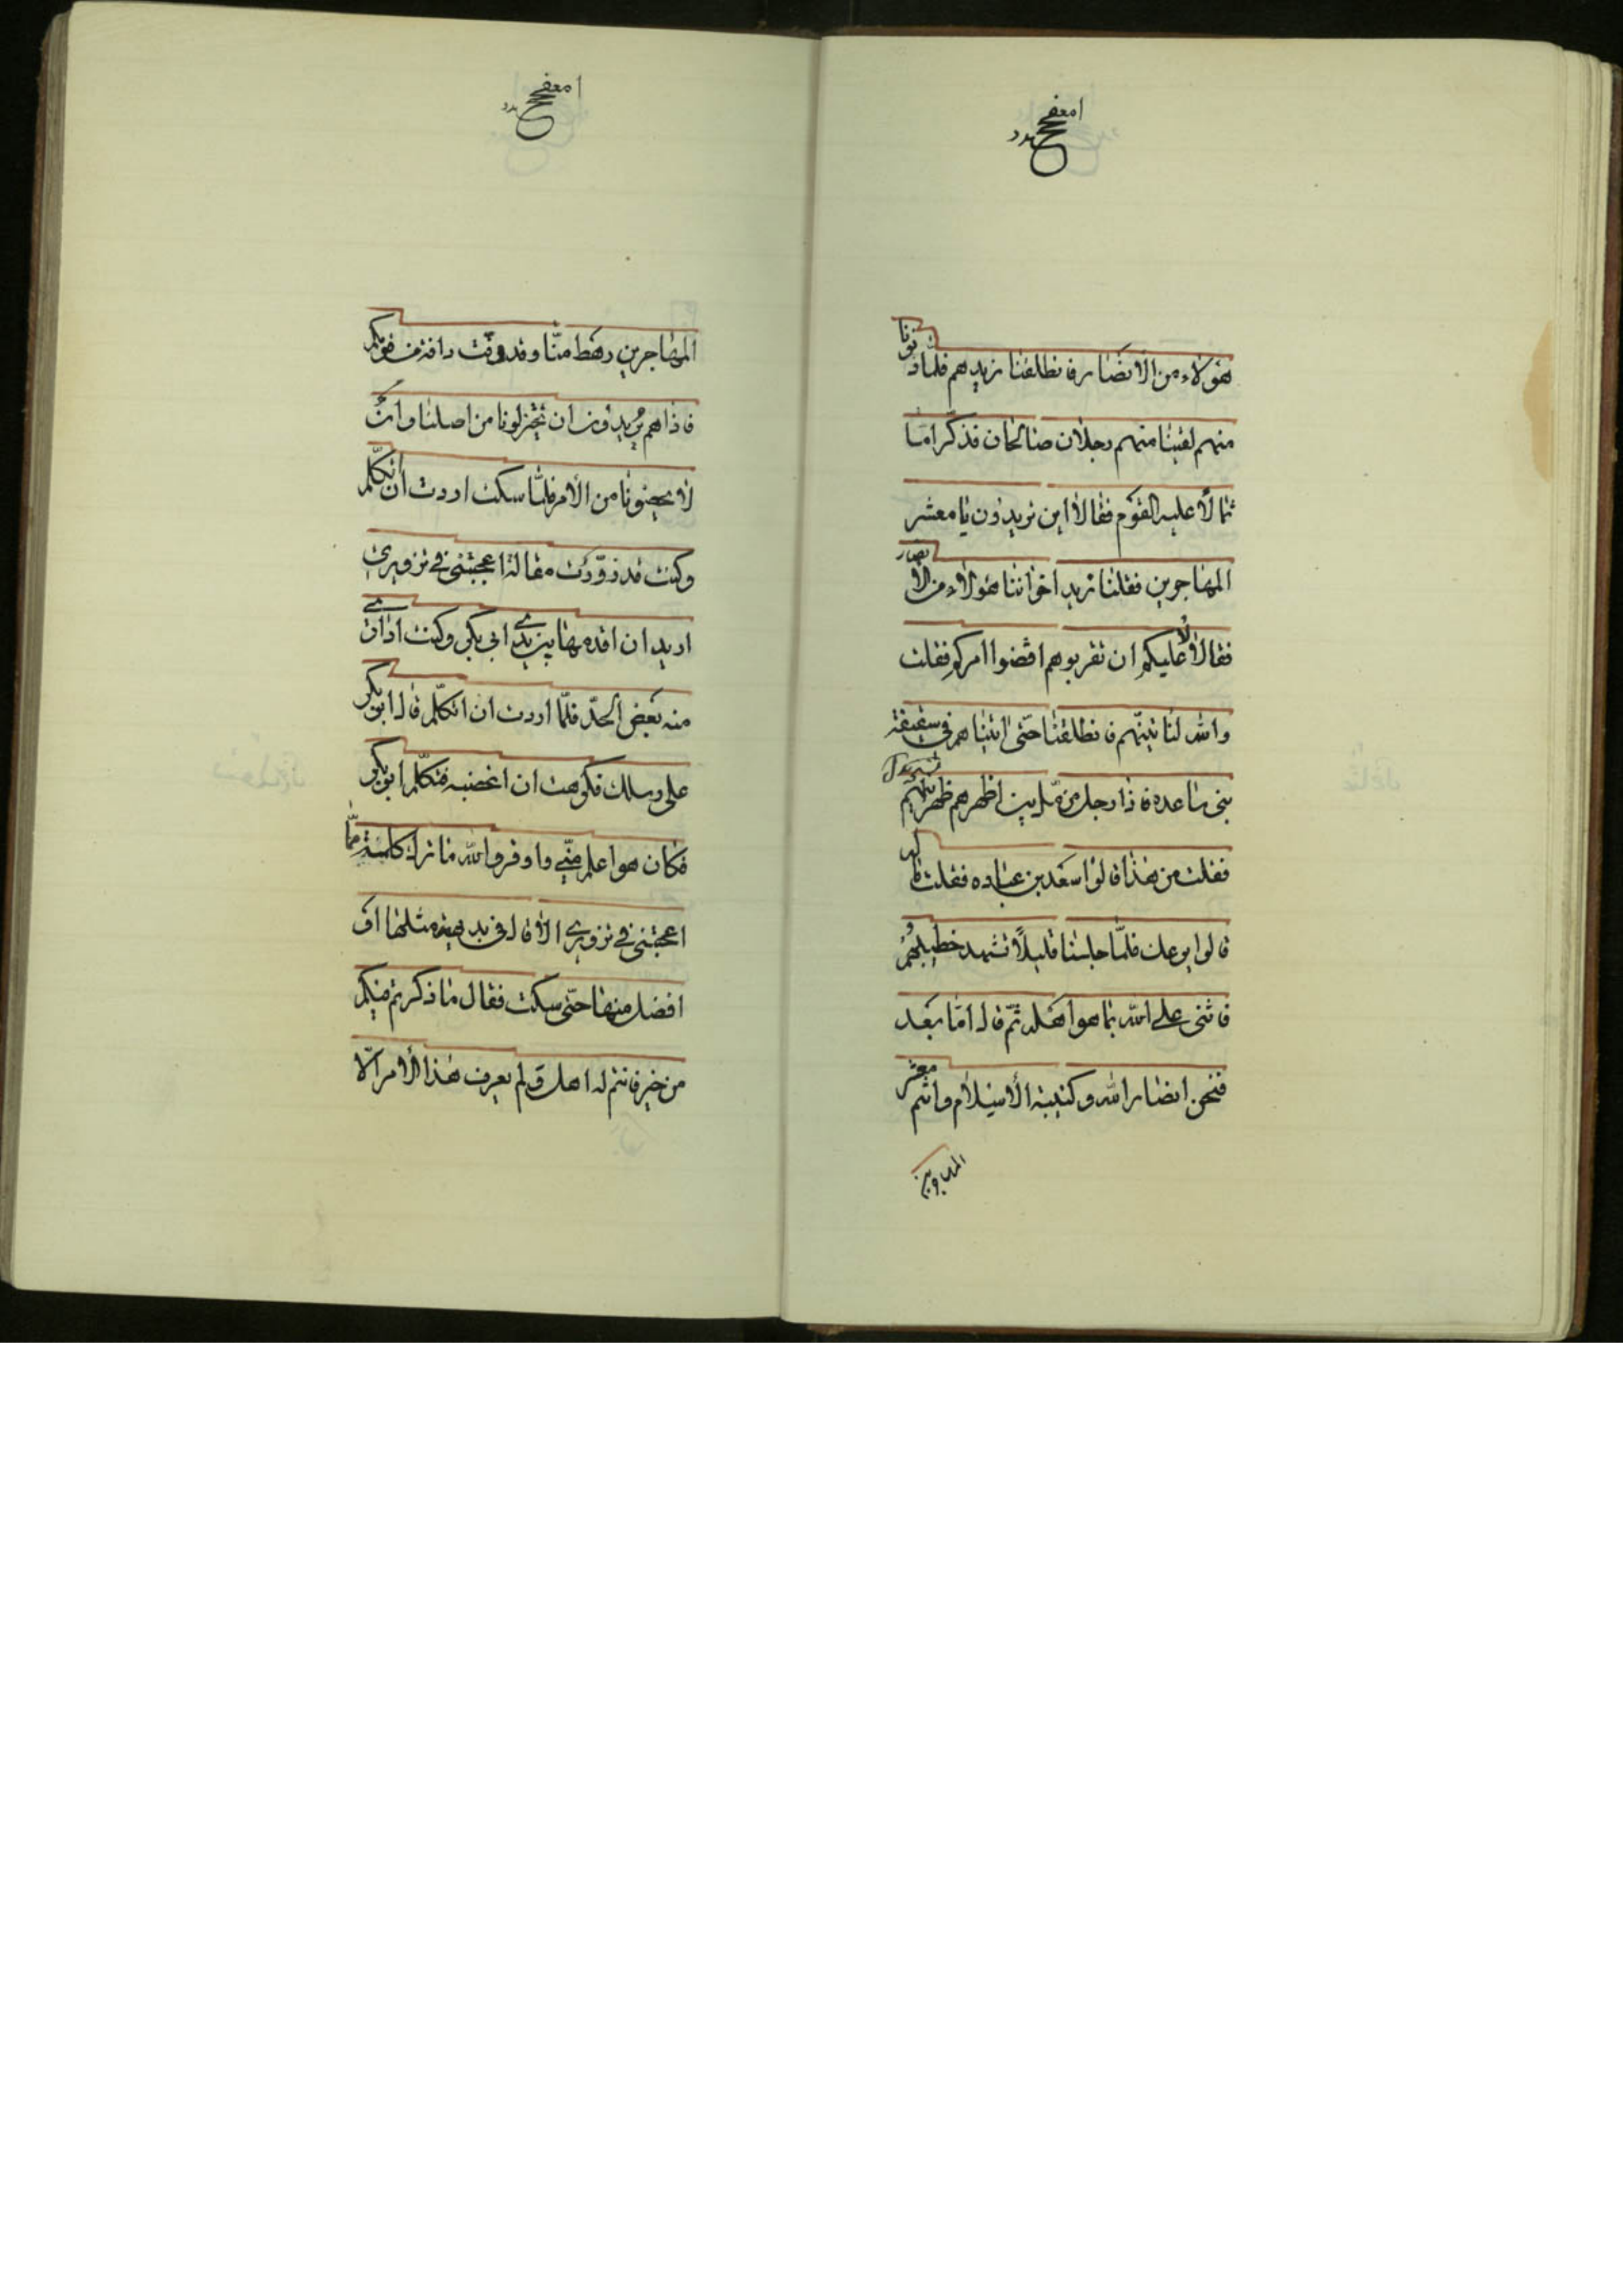 هؤلاء من الانصار فانطلقنا نريدهم فلمّا دنونا
منهم لقينا منهم رجلان صالحان فذكرا ما
تمالأ عليه القوم فقالا این تریدون یا معشر
المهاجرین فقلنا نرید اخواننا هؤلاء من الانصار
فقالا لا علیکم ان تقربوهم اقضوا امرکم فقلت
والله لنأتینّهم فانطلقنا حتّی اتیناهم فی سقیفة
بنی ساعده فاذا رجل مزمّل بین اظهرهم ظهرانیهم
فقلت من هذا قالوا سعد بن عباده فقلت ما له
قالوا یوعك فلمّا جلسنا قلیلاً تشهد خطیبهم
فاثنی علی الله بما هو اهله ثمّ قال امّا بعد
فنحن انصار الله وکتیبة الاسلام وانتم معشر
المهاجرین
المهاجرین رهط منّا وقد دفّت دافة من قومکم
فاذا هم یریدون ان یختزلونا من اصلنا وان
لا یحضونا من الامر فلمّا سکت اردت ان اتکلّم
وکنت قد زوّرت مقالة اعجبتنی فی تزویری
ارید ان اقدمها بین یدی ابی بکر وکنت اداری
منه بعض الحدّ فلمّا اردت ان اتکلّم قال ابوبکر
علی رسلك فکرهت ان اغضبه فتکلّم ابوبکر
فکان هو اعلم منّی واوقر والله ما ترك کلمة ممّا
اعجبتنی فی تزویری الا قال فی بدیهة مثلها او
افضل منها حتّی سکت فقال ما ذکرتم فیکم
من خیر فانتم له اهل ولم یعرف هذا الأمر الّا